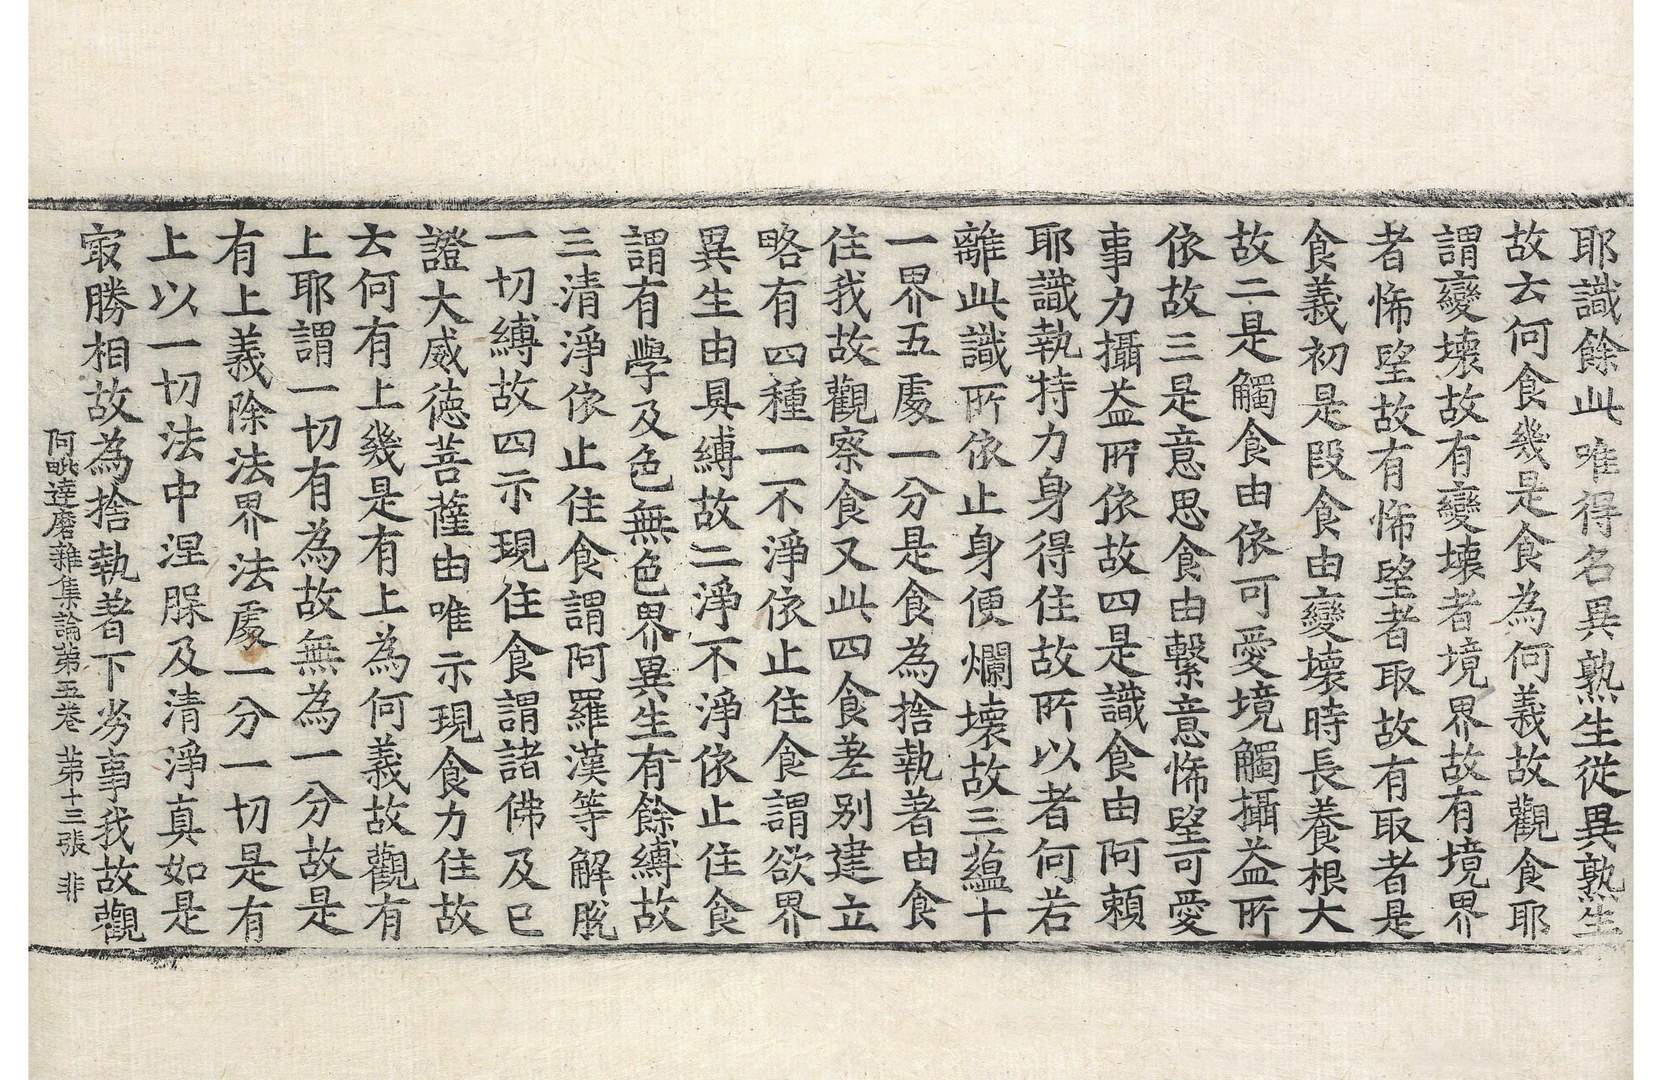 耶識餘此唯得名異熟生從異熟生
故云何食幾是食為何義故觀食耶
謂變壞故有變壞者境界故有境界
者悕望故有悕望者取故有取者是
食義初是段食由變壞時長養根大
故二是觸食由依可愛境觸攝益所
依故三是意思食由繫意悕望可愛
事力攝益所依故四是識食由阿賴
耶識執持力身得住故所以者何若
離此識所依止身便爛壞故三蘊十
一界五處一分是食為捨執著由食
住我故觀察食又此四食差別建立
略有四種一不淨依止住食謂欲界
異生由具縛故二淨不淨依止住食
謂有學及色無色界異生有餘縛故
三清淨依止住食謂阿羅漢等解脫
一切縛故四示現住食謂諸佛及已
證大威德菩薩由唯示現食力住故
云何有上幾是有上為何義故觀有
上耶謂一切有為故無為一分故是
有上義除法界法處一分一切是有
上以一切法中涅槃及清淨真如是
㝡勝相故為捨執著下劣事我故觀
阿毗達磨雜集論第五卷 第十三張 非